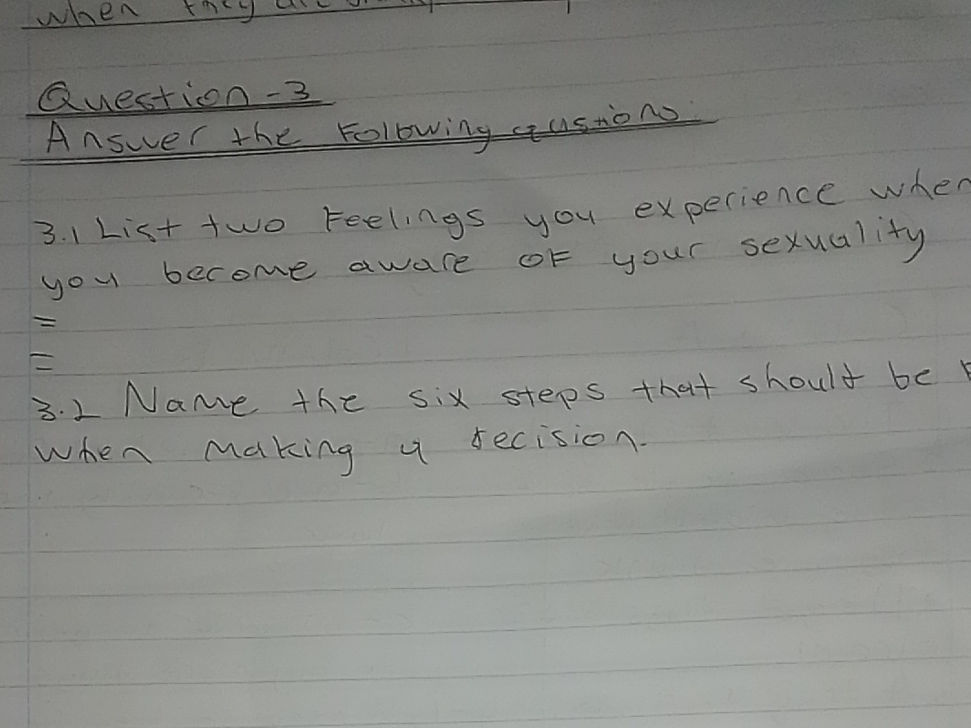 when they are
Question-3
Answer the Following qustions.
3.1 List two Feelings you experience when
you become aware of your sexuality
=
=
3.2 Name the six steps that should be
when making a decision.